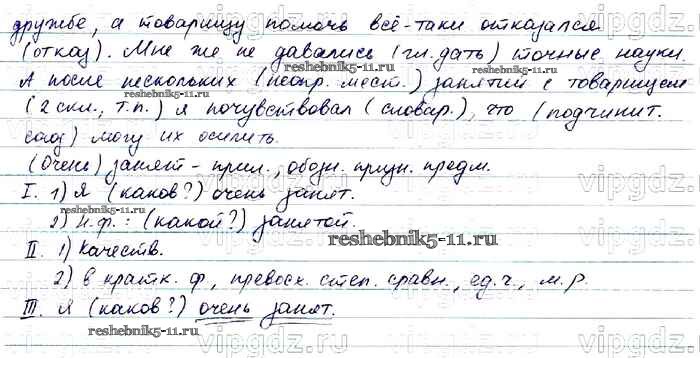 дружбе, а товарищу помочь всё-таки отказался
(отказ). Мне же не давались (гл. дать) точные науки.
reshebnik5-11.ru
А после нескольких (неопр. мест.) занятий с товарищем
(2 скл., т.п.) я почувствовал (словар.), что (подчинит.
союз) могу их осилить.
(Очень) занят - прил., обозн. призн. предм.
I. 1) Я (каков?) очень занят.
reshebnik5-11.ru
2) Н.ф.: (какой?) занятой.
reshebnik5-11.ru
II. 1) Качеств.
2) в кратк. ф., превосх. степ. сравн., ед.ч., м.р.
III. Я (каков?) очень занят.
reshebnik5-11.ru
vipgdz.ru